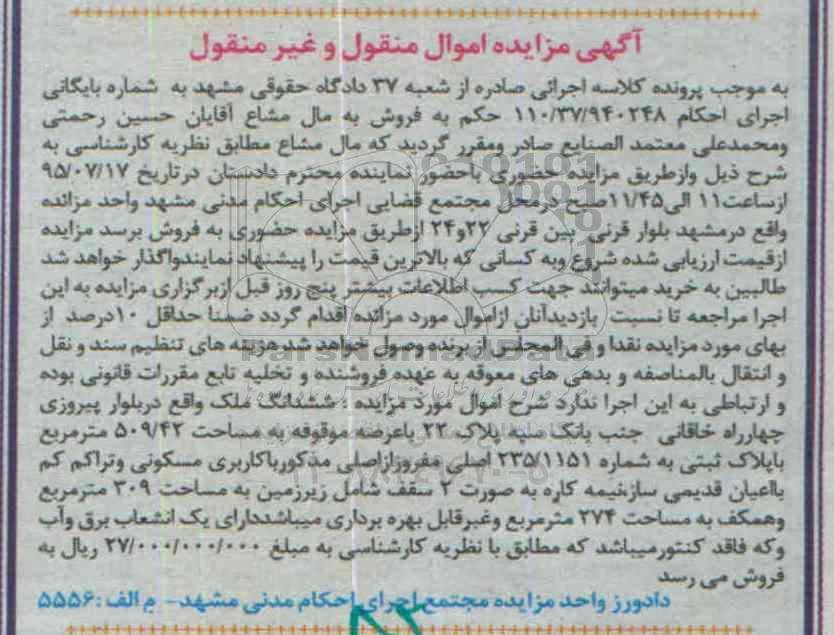 آگهی مزایده اموال منقول و غیر منقول
به موجب پرونده کلاسه اجرائی صادره از شعبه ۳۷ دادگاه حقوقی مشهد به شماره بایگانی
اجرای احکام ۱۱۰/۳۷/۹۴۰۲۴۸ حکم به فروش به مال مشاع آقایان حسین رحمتی
ومحمدعلی معتمد الصنایع صادر ومقرر گردید که مال مشاع مطابق نظریه کارشناسی به
شرح ذیل وازطریق مزایده حضوری باحضور نماینده محترم دادستان درتاریخ ۹۵/۰۷/۱۷
ازساعت۱۱ الی۱۱/۴۵صبح درمحل مجتمع قضایی اجرای احکام مدنی مشهد واحد مزائده
واقع درمشهد بلوار قرنی بین قرنی ۲۲و۲۴ ازطریق مزایده حضوری به فروش برسد مزایده
ازقیمت ارزیابی شده شروع وبه کسانی که بالاترین قیمت را پیشنهاد نمایندواگذار خواهد شد
طالبین به خرید میتوانند جهت کسب اطلاعات بیشتر پنج روز قبل ازبرگزاری مزایده به این
اجرا مراجعه تا نسبت بازدیدآنان ازاموال مورد مزائده اقدام گردد ضمنا حداقل ۱۰درصد از
بهای مورد مزایده نقدا و فی المجلس از برنده وصول خواهد شد هزینه های تنظیم سند و نقل
و انتقال بالمناصفه و بدهی های معوقه به عهده فروشنده و تخلیه تابع مقررات قانونی بوده
و ارتباطی به این اجرا ندارد شرح اموال مورد مزایده : ششدانگ ملک واقع دربلوار پیروزی
چهارراه خاقانی جنب بانک سپه پلاک ۲۲ باعرصه موقوفه به مساحت ۵۰۹/۴۲ مترمربع
باپلاک ثبتی به شماره ۲۳۵/۱۱۵۱ اصلی مفروزازاصلی مذکورباکاربری مسکونی وتراکم کم
بااعیان قدیمی سازنیمه کاره به صورت ۲ سقف شامل زیرزمین به مساحت ۳۰۹ مترمربع
وهمکف به مساحت ۲۷۴ مترمربع وغیرقابل بهره برداری میباشددارای یک انشعاب برق وآب
وکه فاقد کنتورمیباشد که مطابق با نظریه کارشناسی به مبلغ ۲۷/۰۰۰/۰۰۰/۰۰۰ ریال به
فروش می رسد
دادورز واحد مزایده مجتمع اجرای احکام مدنی مشهد- م الف :۵۵۵۶
ParsNamadData